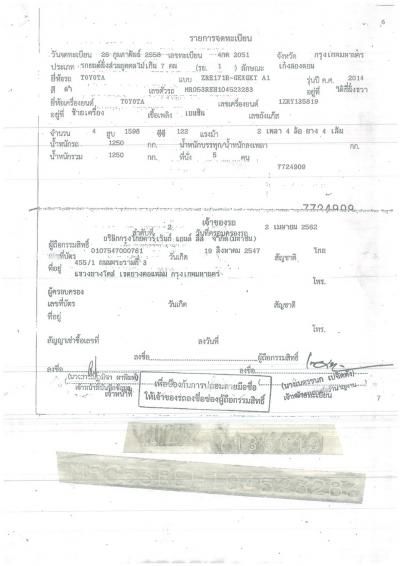 6
รายการจดทะเบียน
วันจดทะเบียน 26 กุมภาพันธ์ 2558 เลขทะเบียน 4กด 2051 จังหวัด กรุงเทพมหานคร
ประเภท รถยนต์นั่งส่วนบุคคลไม่เกิน 7 คน (รย. 1 ) ลักษณะ เก๋งสองตอน
ยี่ห้อรถ TOYOTA แบบ ZRE171R-GEXGKT A1 รุ่นปี ค.ศ. 2014
สี ดำ เลขตัวรถ MR053REH104523283 อยู่ที่
ยี่ห้อเครื่องยนต์ TOYOTA เลขเครื่องยนต์ 1ZRY135819
อยู่ที่ ซ้ายเครื่อง เชื้อเพลิง เบนซิน เลขถังแก๊ส
จำนวน 4 สูบ 1598 ซีซี 122 แรงม้า 2 เพลา 4 ล้อ ยาง 4 เส้น
น้ำหนักรถ 1250 กก. น้ำหนักบรรทุก/น้ำหนักลงเพลา กก.
น้ำหนักรวม 1250 กก. ที่นั่ง 5 คน
7724909
7724909
เจ้าของรถ
ลำดับที่ 2 วันที่ครอบครองรถ 2 เมษายน 2562
ผู้ถือกรรมสิทธิ์ บริษัทกรุงไทยคาร์เร้นท์ แอนด์ ลีส จำกัด(มหาชน)
เลขที่บัตร 0107547000781 วันเกิด 19 สิงหาคม 2547 สัญชาติ ไทย
ที่อยู่ 455/1 ถนนพระรามที่ 3
แขวงบางโคล่ เขตบางคอแหลม กรุงเทพมหานคร โทร.
ผู้ครอบครอง
เลขที่บัตร วันเกิด สัญชาติ
ที่อยู่
โทร.
สัญญาเช่าซื้อเลขที่ ลงวันที่
ลงชื่อ ผู้ถือกรรมสิทธิ์
ลงชื่อ ลงชื่อ
เจ้าหน้าที่ นายทะเบียน
เพื่อป้องกันการปลอมลายมือชื่อ
ให้เจ้าของรถลงชื่อช่องผู้ถือกรรมสิทธิ์
7